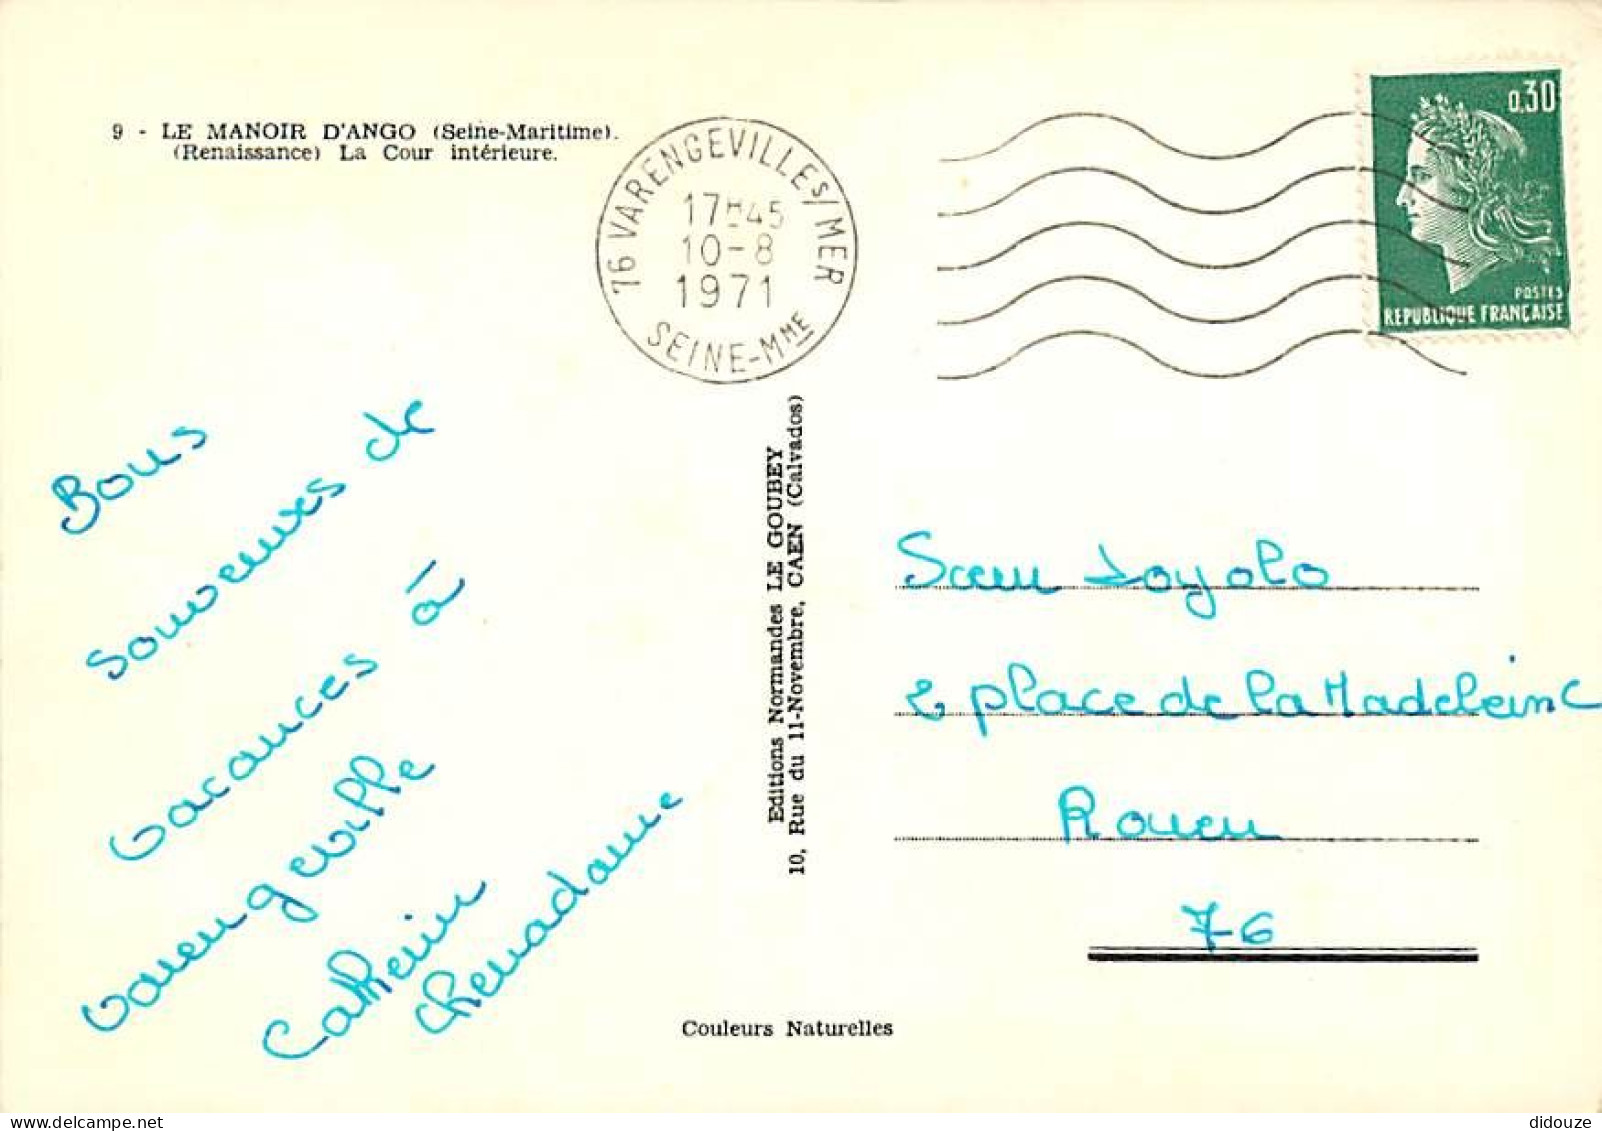 9 - LE MANOIR D'ANGO (Seine-Maritime).
(Renaissance) La Cour intérieure.
76 VARENGEVILLE S/MER
17H45
10-8
1971
SEINE-MME
0,30
POSTES
REPUBLIQUE FRANÇAISE
Bons
souvenirs de
vacances à
Varengeville
Catherine
Editions Normandes LE GOUBEY
10, Rue du 11-Novembre, CAEN (Calvados)
Sœur Loyola
2 place de la Madeleine
Rouen
76
Couleurs Naturelles
didouze